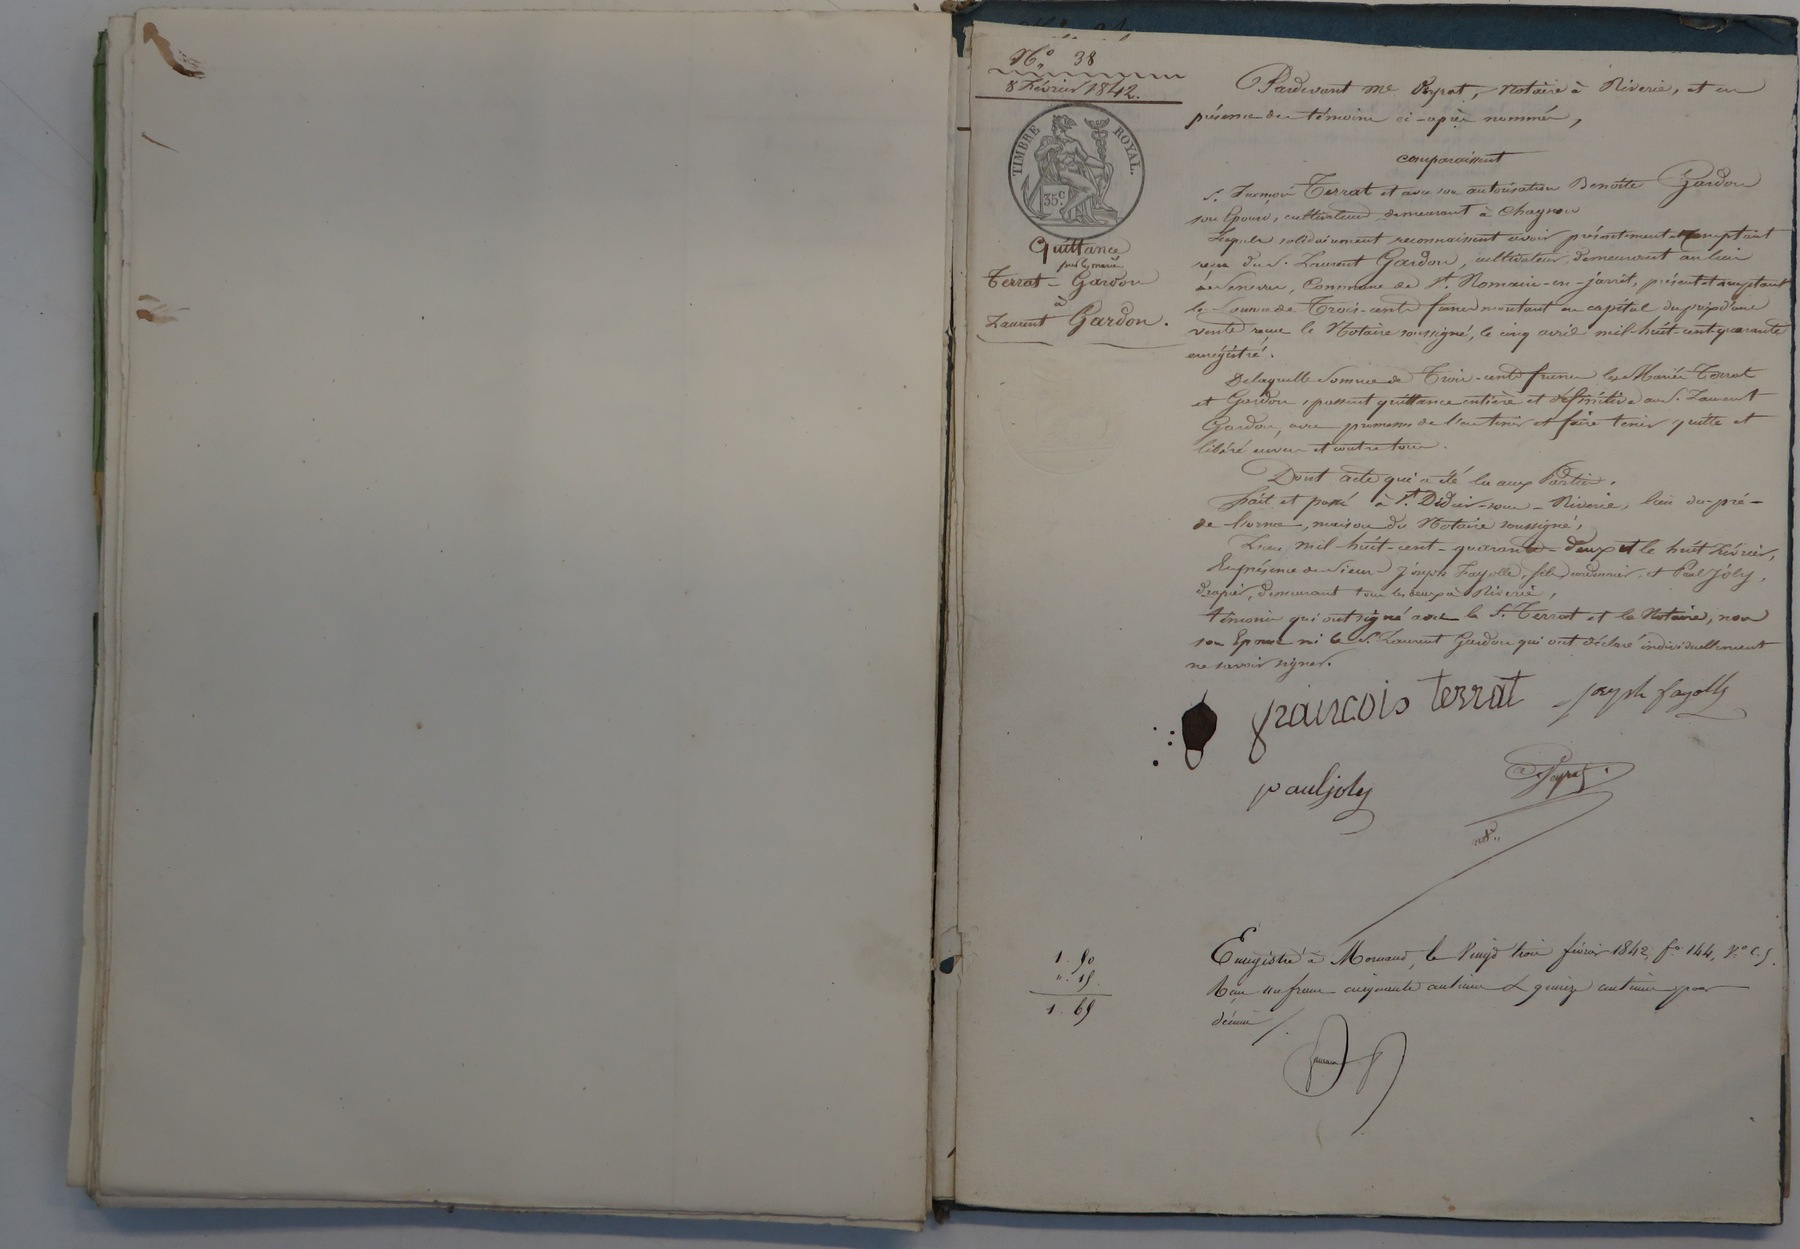 N.o 38
8 Février 1842.
TIMBRE ROYAL.
35 c.
Quittance
par les mariés
Terrat - Gardon
à
Laurent Gardon.
Pardevant Me Peyrat, Notaire à Riverie, et en
présence des témoins ci-après nommés,
comparaissent
S. François Terrat et avec son autorisation Benoîte Gardon
son Epouse, cultivateurs demeurant à Chagnon
Lesquels solidairement reconnaissent avoir présentement et comptant
reçu du S. Laurent Gardon, cultivateur, demeurant au lieu
de Commune de St. Romain-en-jarrêt, présent et acceptant
la Somme de Trois-cents francs montant en capital du prix d'une
vente reçue le Notaire soussigné, le cinq avril mil-huit-cent-quarante
enregistré.
De laquelle Somme de Trois-cents francs les Mariés Terrat
et Gardon passent quittance entière et définitive au S. Laurent
Gardon, avec promesse de l'en tenir et faire tenir quitte et
libéré envers et contre tous.
Dont acte qui a été lu aux Parties.
Fait et passé à St. Didier-sous-Riverie, lieu du-pré-
de lorme, maison du Notaire soussigné,
L'an mil-huit-cent-quarante-deux et le huit Février,
En présence de Sieurs Joseph Fayolle, fils, cordonnier, et Paul Joly,
drapier, demeurant tous les deux à Riverie,
témoins qui ont signé avec le S. Terrat et le Notaire, non
son Epouse ni le S. Laurent Gardon qui ont déclaré individuellement
ne savoir signer.
françois terrat joseph fayolle
paul joly
Peyrat
Enregistré à Mornand, le Vingt trois février 1842, fo. 144, Vo. C. 5.
Reçu un franc cinquante centimes & quinze centimes pour
décime
1. 50
". 15.
1. 65